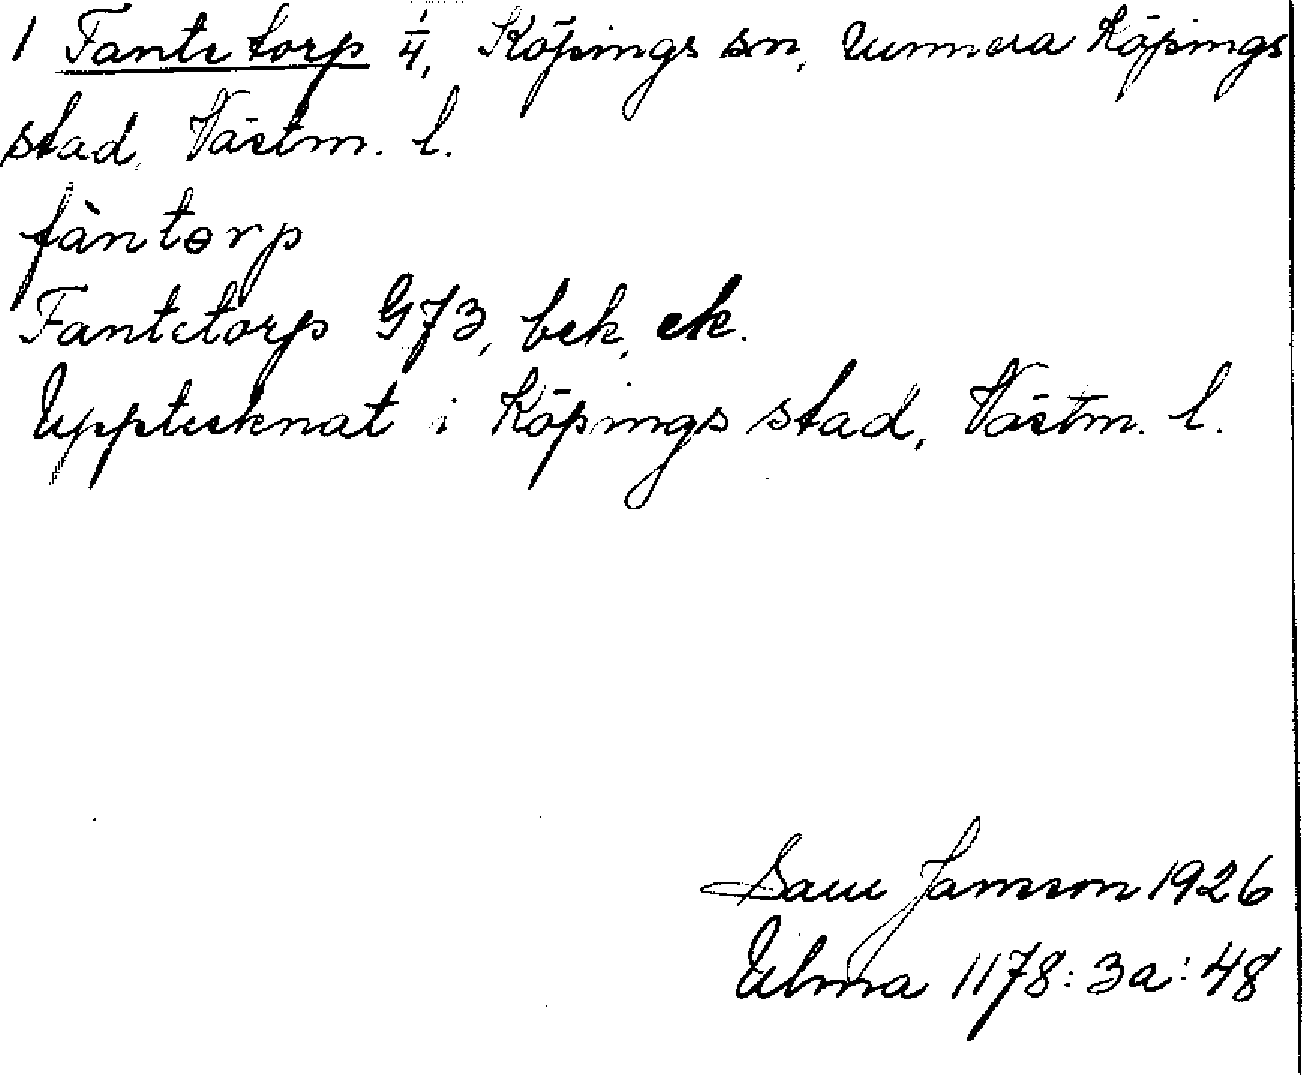 1 Fantetorp 1/4, Köpings sn, numera Köpings
stad, Västm. l.
fàntɵrp
Fantetorp G73, bek. ek.
Upptecknat i Köpings stad, Västm. l.
Jansson 1926
Ulma 1178:3a:48